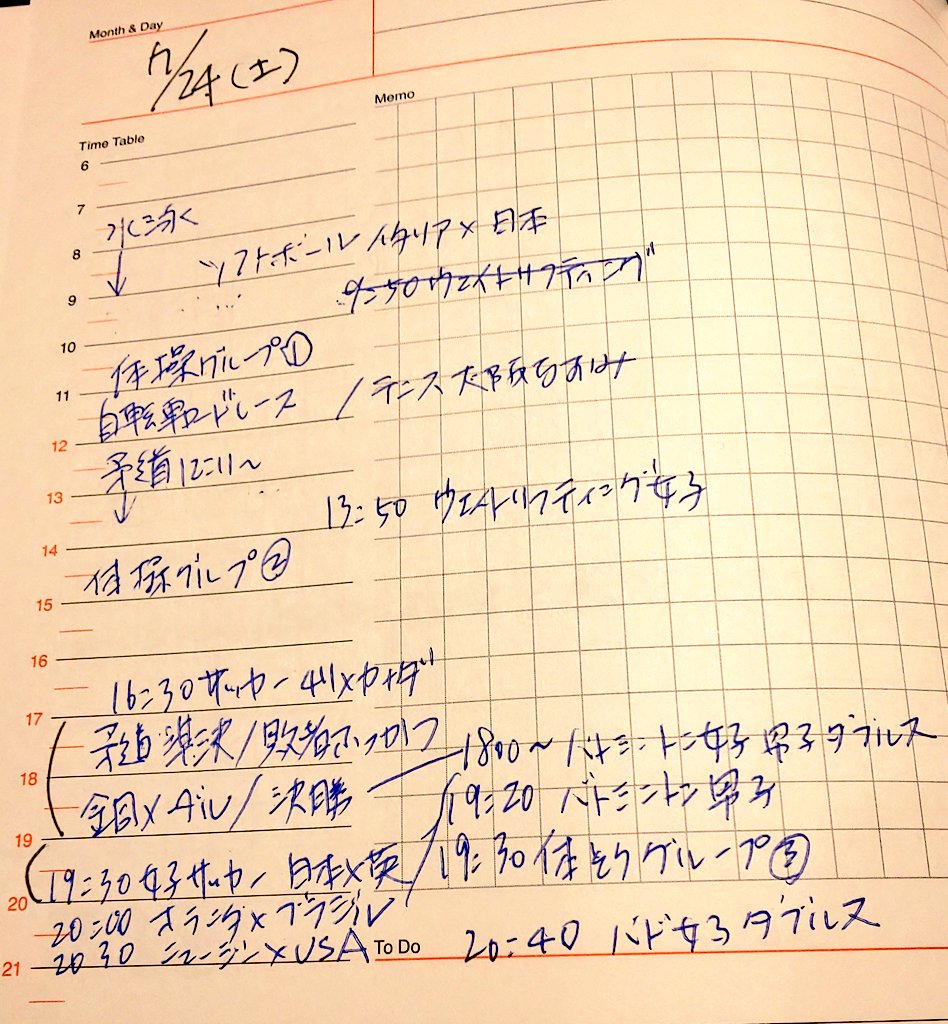 Month & Day
7/24(土)
Memo
Time Table
6
7
水泳
8
ソフトボール イタリア×日本
9
9:50ウェイトリフティング
10
体操グループ①
11
自転車ロードレース / テニス大阪なおみ
12
柔道12:11~
13
13:50 ウエイトリフティング女子
14
体操グループ②
15
16
16:30サッカー チリ×カナダ
17
柔道 準決/敗者ふっかつ
1800~バトミントン女子 男子ダブルス
18
金目×メダル/決勝
/19:20 バトミントン男子
19
19:30女子サッカー 日本×英
19:30体そうグループ③
20
20:00 オランダ×ブラジル
20:40 バド女子ダブルス
20 30 ニュージー×USA
To Do
21